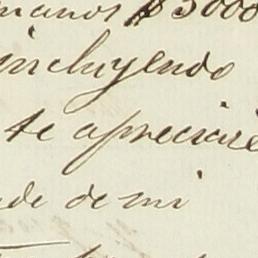 manos $ 5000
incluyendo
te apreciaré
de de mi